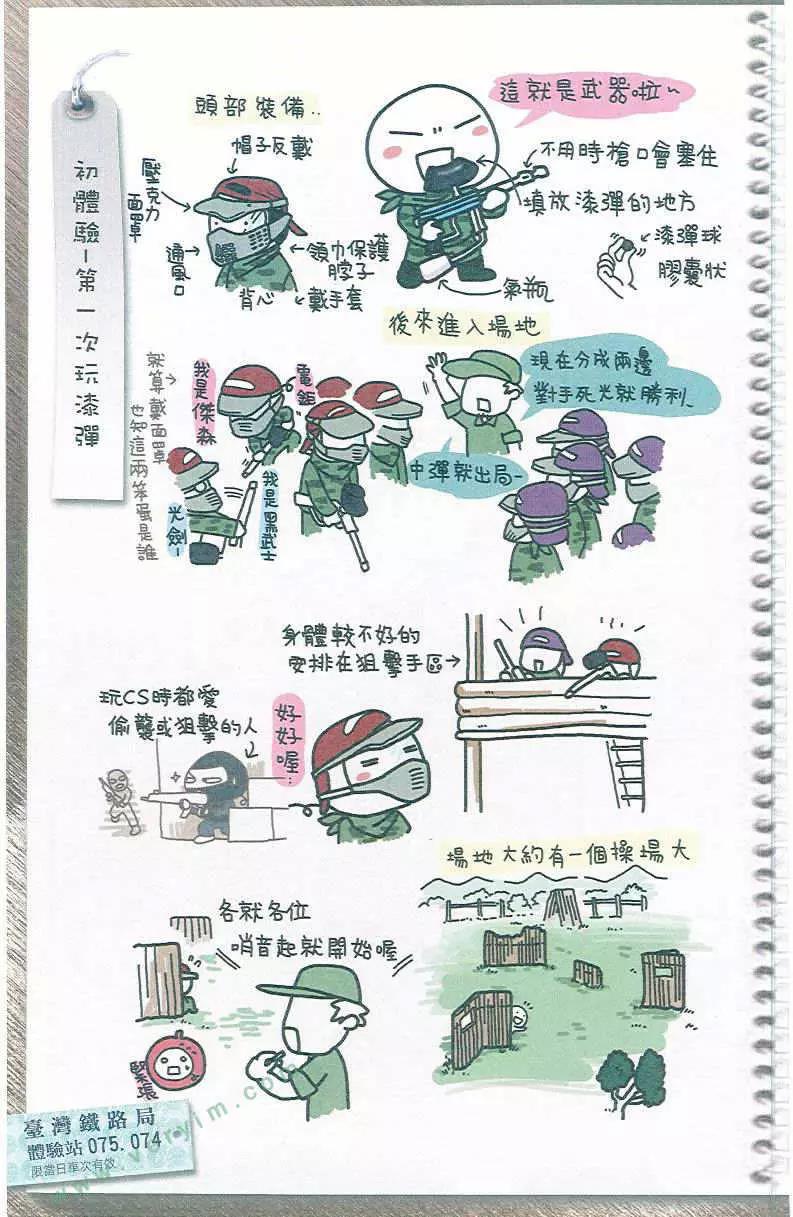 初體驗-第一次玩漆彈
頭部裝備..
帽子反戴
壓克力
面罩
通風口
領巾保護
脖子
背心
戴手套
這就是武器啦~
不用時槍口會塞住
填放漆彈的地方
漆彈球
膠囊狀
氣瓶
後來進入場地
現在分成兩邊
對手死光就勝利~
中彈就出局-
我是傑森
電鋸
就算戴面罩
也知道兩笨蛋是誰
我是黑武士
光劍-
身體較不好的
安排在狙擊手區
玩CS時都愛
偷襲或狙擊的人
好好喔...
場地大約有一個操場大
各就各位
哨音起就開始喔
緊張
臺灣鐵路局
體驗站075.074
限當日單次有效